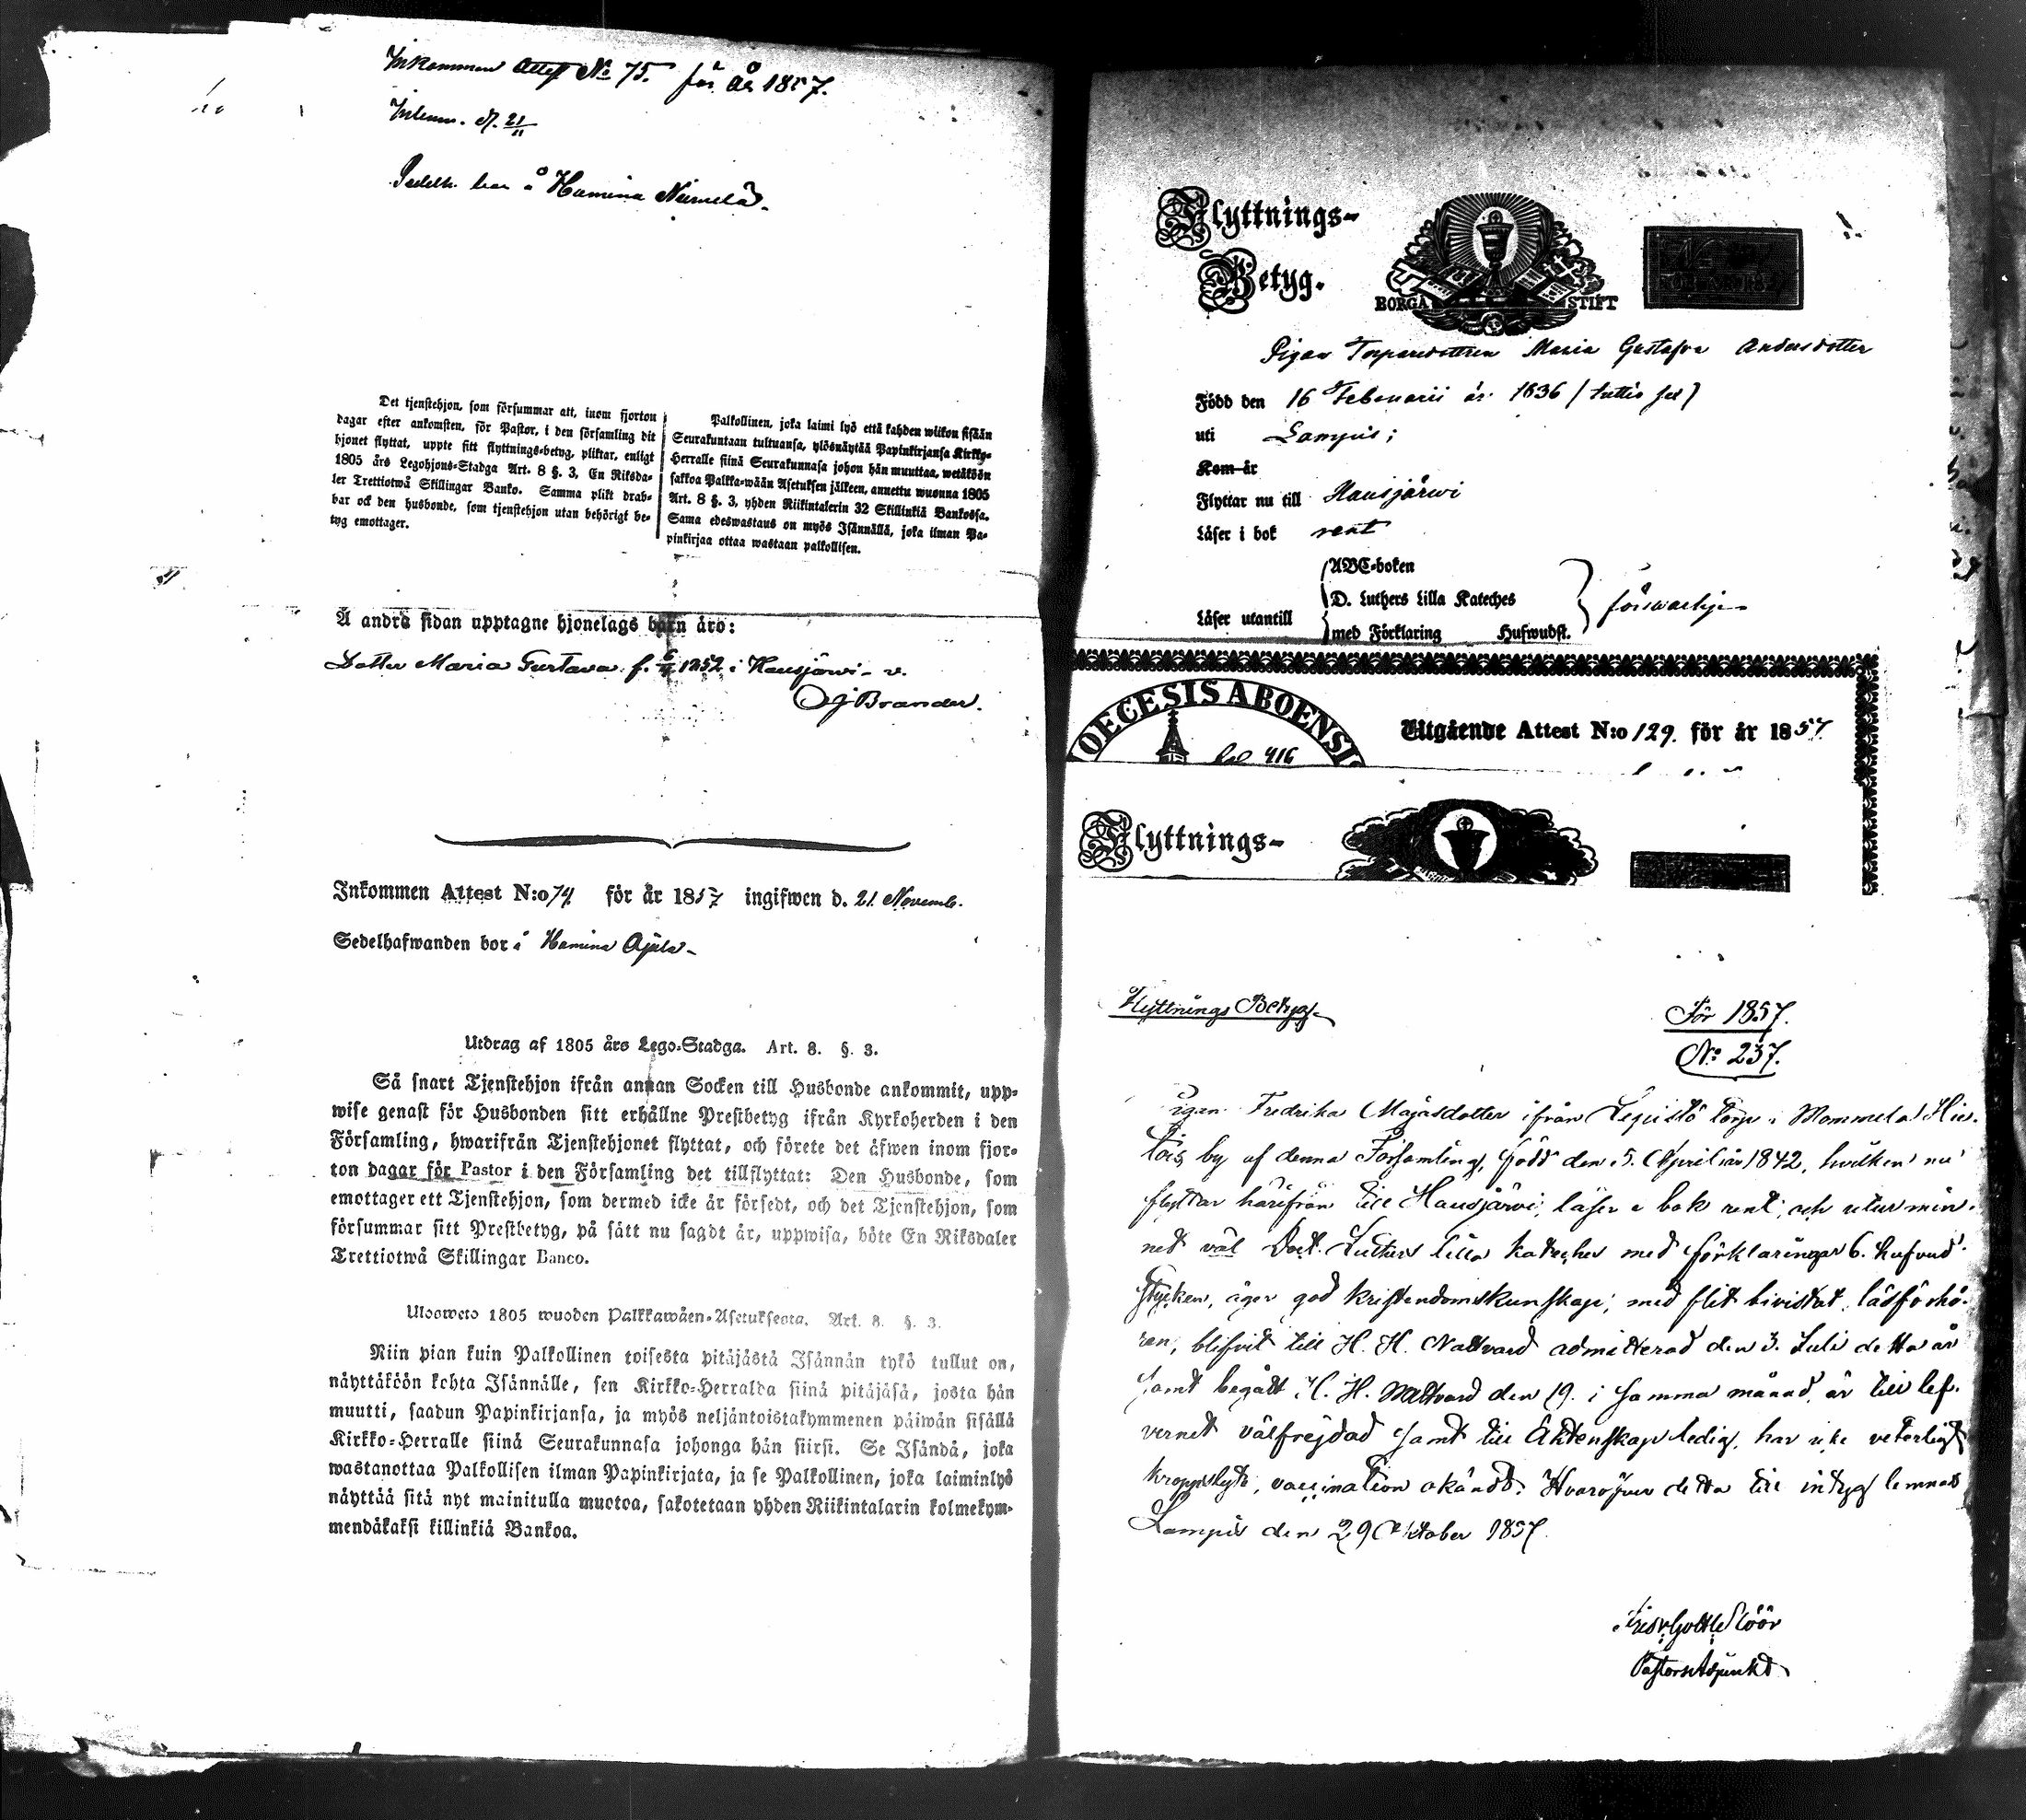 Inkommen Attest No 75. för år 1857.
Inlemn. d. 21/11
Sedelh. bor å Hamina Niemelä.
Det tjenstehjon, som försummar att, inom fjorton
dagar efter ankomsten, för Pastor, i den församling dit
hjonet flyttat, uppte sitt flyttnings-betyg, pliktar, enligt
1805 års Legohjons-Stadga Art. 8 §. 3, En Riksda-
ler Trettiotwå Skillingar Banko. Samma plikt drab-
bar ock den husbonde, som tjenstehjon utan behörigt be-
tyg emottager.
Palkollinen, joka laimi lyö että kahden wiikon sisään
Seurakuntaan tultuansa, ylösnäytää Papinkirjansa Kirkky-
Herralle siinä Seurakunnasa johon hän muuttaa, wetäköön
sakkoa Palkka-wään Asetuksen jälkeen, annettu wuonna 1805
Art. 8 §. 3, yhden Riikintalerin 32 Skillinkiä Bankossa.
Sama edeswastaus on myös Isännällä, joka ilman Pa-
pinkirjaa ottaa wastaan palkollisen.
Å andra sidan upptagne hjonelags barn äro:
Dotter Maria Gustava f. 1852 i Hausjärwi - v.
Brander.
Inkommen Attest N:o 74 för år 1857 ingifwen d. 21 Novemb.
Sedelhafwanden bor å Hamina Ajala
Utdrag af 1805 års Lego-Stadga. Art. 8. §. 3.
Så snart Tjenstehjon ifrån annan Socken till Husbonde ankommit, upp-
wise genast för Husbonden sitt erhållne Prestbetyg ifrån Kyrkoherden i den
Församling, hwarifrån Tjenstehjonet flyttat, och förete det äfwen inom fjor-
ton dagar för Pastor i den Församling det tillflyttat: Den Husbonde, som
emottager ett Tjenstehjon, som dermed icke är försedt, och det Tjenstehjon, som
försummar sitt Prestbetyg, på sätt nu sagdt är, uppwisa, böte En Riksdaler
Trettiotwå Skillingar Banco.
Ulosweto 1805 wuoden Palkkawäen-Asetuksesta. Art. 8. §. 3.
Niin pian kuin Palkollinen toisesta pitäjästä Isännän tykö tullut on,
näyttäköön kohta Isännälle, sen Kirkko-Herralda siinä pitäjäsä, josta hän
muutti, saadun Papinkirjansa, ja myös neljäntoistakymmenen päiwän sisällä
Kirkko-Herralle siinä Seurakunnasa johonga hän siirsi. Se Isändä, joka
wastanottaa Palkollisen ilman Papinkirjata, ja se Palkollinen, joka laiminlyö
näyttää sitä nyt mainitulla muotoa, sakotetaan yhden Riikintalarin kolmekym-
mendäkaksi killinkiä Bankoa.
Flyttnings-
Betyg.
BORGÅ STIFT
Pigan Torparedottren Maria Gustafva Andersdotter
Född den 16 Februarii år 1836
uti Lampis;
Kom år
Flyttar nu till Hausjärwi
Läser i bok rent
Läser utantill
ABC-boken
D. Luthers Lilla Kateches
med Förklaring Hufwudst.
försvarligen
DIOECESIS ABOENSIS
fol 416
Utgående Attest N:o 129. för år 1857.
Flyttnings-
Flyttnings Betyg.
För 1857.
No 237.
Pigan Fredrika Majasdotter ifrån torp i Mommela Hie-
tois by af denna Församling, född den 5. April år 1842, hvilken nu
flyttar härifrån till Hausjärvi, läser i bok rent, och utur min-
net väl Doct. Luthers lilla kateches med förklaringar 6. hufvud
stycken, äger god kristendomskunskap; med flit bivistat läsförhö-
ren, blifvit till H. H. Nattvard admitterad den 3. Juli detta år
samt begått H. H. Nattvard den 19. i samma månad, är till lef-
vernet välfrejdad samt till Ägtenskap ledig, har icke veterligt
kroppslyte, vaccination okändt. Hvaröfver detta till intyg lemnas
Lampis den 29 Oktober 1857.
Pastorsadjunkt